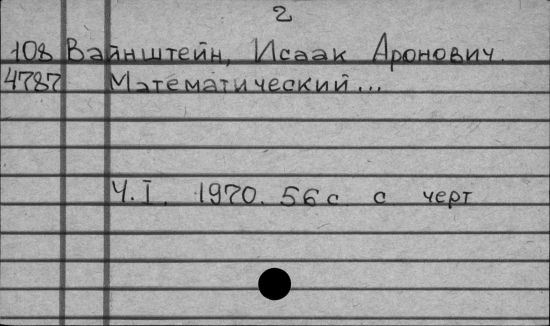 2
108 Вайнштейн, Исаак Аронович.
4787 Математический...
Ч.I. 1970. 56 с. с черт